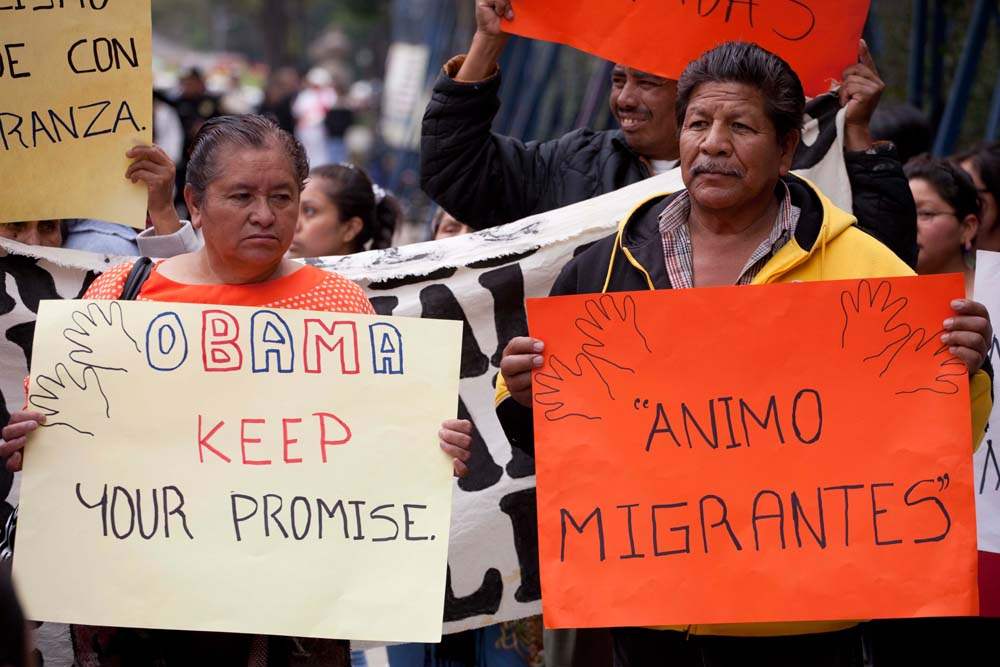 ISMO
E CON
RANZA.
AS
OBAMA
KEEP
YOUR PROMISE.
"ANIMO
MIGRANTES"